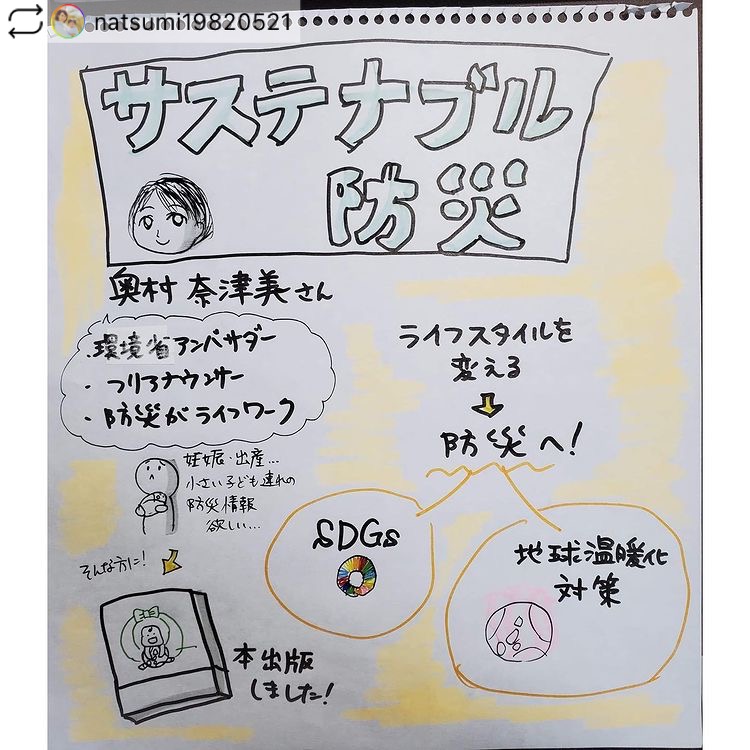 natsumi19820521
サステナブル
防災
奥村 奈津美さん
・環境省アンバサダー
・フリーアナウンサー
・防災がライフワーク
妊娠・出産...
小さい子ども連れの
防災情報
欲しい...
そんな方に!
本出版
しました!
ライフスタイルを
変える
防災へ!
SDGs
地球温暖化
対策